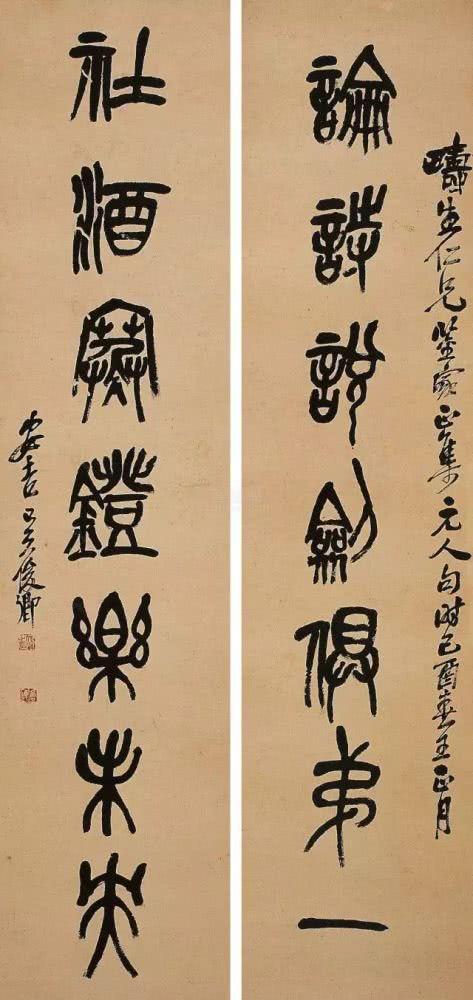 疇生仁兄鑒家正集元人句時己酉春王正月
論詩說劍俱弟一
社酒鐙樂未央
安吉吳俊卿